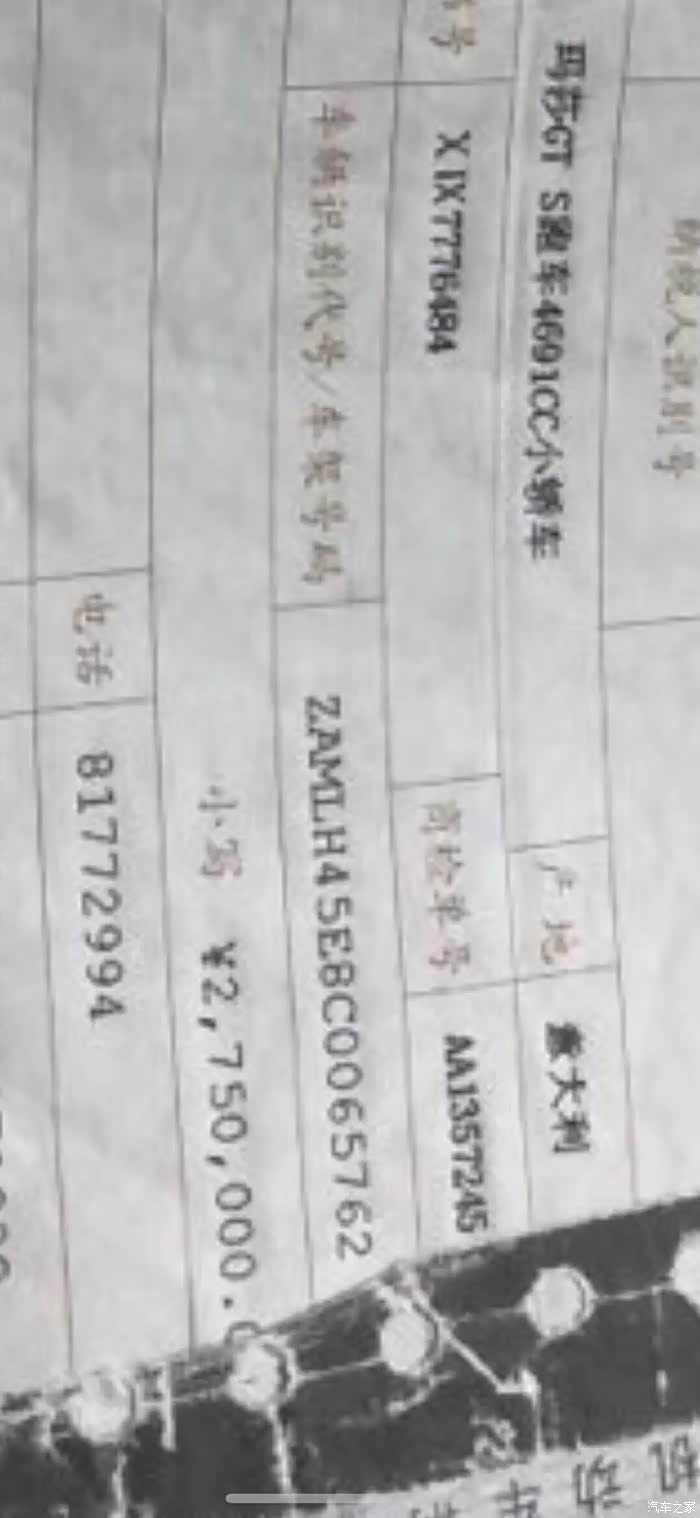 纳税人识别号
玛莎GT S跑车4691CC小轿车 产地 意大利
号 XIX7776484 商检单号 AA1357245
车辆识别代号/车架号码 ZAMLH45E8C0065762
小写 ¥2,750,000.
电话 81772994
汽车之家